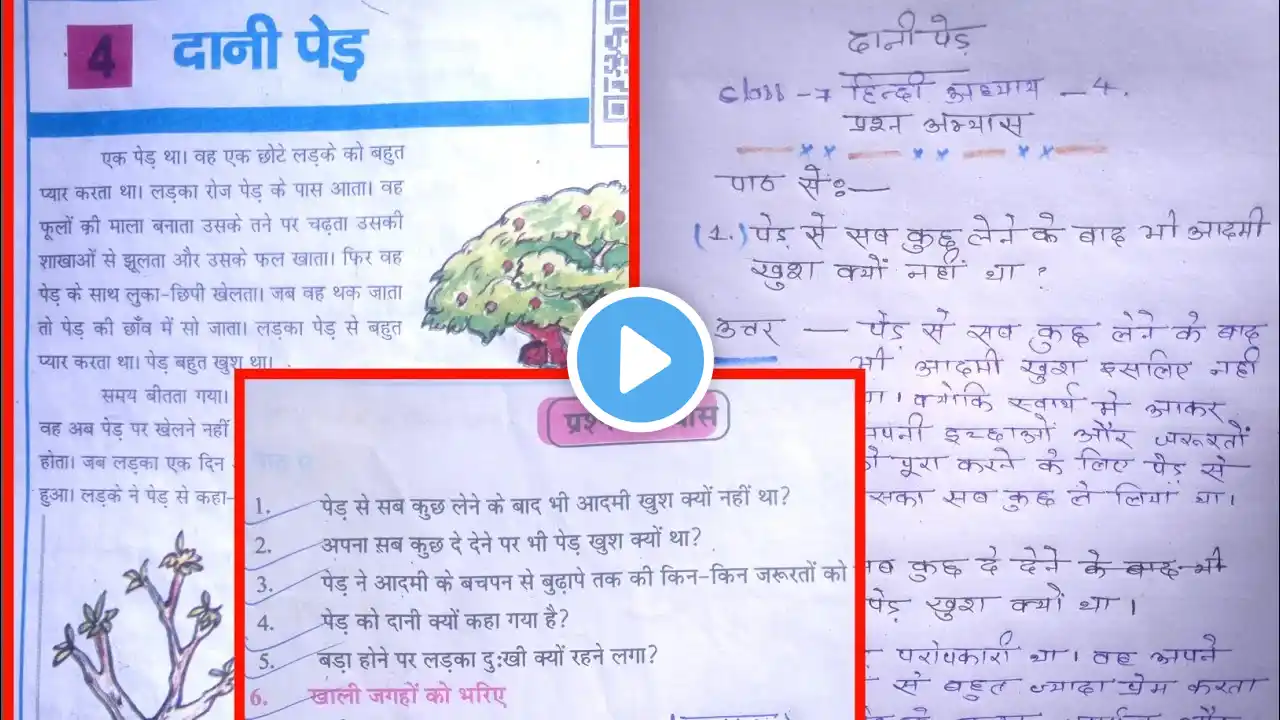 4 दानी पेड़
एक पेड़ था। वह एक छोटे लड़के को बहुत
प्यार करता था। लड़का रोज पेड़ के पास आता। वह
फूलों की माला बनाता उसके तने पर चढ़ता उसकी
शाखाओं से झूलता और उसके फल खाता। फिर वह
पेड़ के साथ लुका-छिपी खेलता। जब वह थक जाता
तो पेड़ की छाँव में सो जाता। लड़का पेड़ से बहुत
प्यार करता था। पेड़ बहुत खुश था।
समय बीतता गया।
वह अब पेड़ पर खेलने नहीं
होता। जब लड़का एक दिन
हुआ। लड़के ने पेड़ से कहा-
1. पेड़ से सब कुछ लेने के बाद भी आदमी खुश क्यों नहीं था?
2. अपना सब कुछ दे देने पर भी पेड़ खुश क्यों था?
3. पेड़ ने आदमी के बचपन से बुढ़ापे तक की किन-किन जरूरतों को
4. पेड़ को दानी क्यों कहा गया है?
5. बड़ा होने पर लड़का दुःखी क्यों रहने लगा?
6. खाली जगहों को भरिए
दानी पेड़
class → 7 हिन्दी अध्याय – 4.
प्रश्न अभ्यास
पाठ से:—
(1.) पेड़ से सब कुछ लेने के बाद भी आदमी
खुश क्यों नहीं था ?
उत्तर — पेड़ से सब कुछ लेने के बाद
भी आदमी खुश इसलिए नहीं
था। क्योकि स्वार्थ मे आकर
अपनी इच्छाओं और जरूरतों
को पूरा करने के लिए पेड़ से
उसका सब कुछ ले लिया था।
सब कुछ दे देने के बाद भी
पेड़ खुश क्यों था।
परोपकारी था। वह अपने
से बहुत ज्यादा प्रेम करता